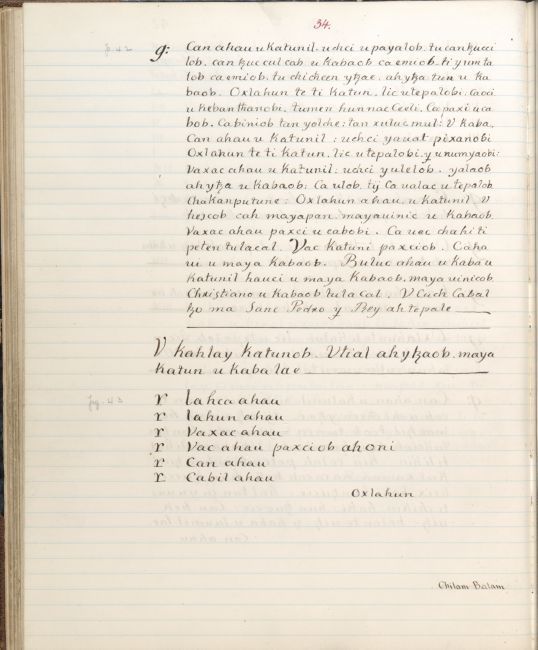 34.
p. 42
g: Can ahau u katunil. uchci u payalob. tu can tzucci
lob. can tzuc cul cab. u kabaob ca emiob. ti y um ta
lob ca emiob. tu chicheen ytzae. ah ytza tun u ka
baob. Oxlahun te ti katun. lic u tepalobi: Caoci
u keban thanobi. tumen hunnac Ceeli. Ca paxi u ca
bob. Ca biniob tan yolche: tan xuluc mul: V kaba.,
Can ahau u katunil: uchci yauat pixanobi
Oxlahun te ti katun. lic u tepalobi. y u numyaobi:
Vaxac ahau u katunil: uchci yulelob. yalaob
ah ytza u kabaob: Ca ulob. tij Ca ualac u tepalob
Chakanputune: Oxlahun ahau. u katunil. V
hejcob cah mayapan. maya uinic u kabaob.
Vaxac ahau paxci u cabobi. Ca uec chahi ti
peten tulacal. Vac katuni paxciob. Caha
ui u maya kabaob. Buluc ahau u kaba u
katunil hauci u maya kabaob. maya uinicob.
Christiano u kabaob tulacal. V Cuch Cabal
tzo ma Sanc Pedro y Rey ah tepale
V kahlay katunob. Vtial ah ytzaob. maya
katun u kaba lae
pg. 43
r lahca ahau
r lahun ahau
r Vaxac ahau
r Vac ahau paxciob ahoni
r Can ahau
r Cabil ahau
Oxlahun
Chilam Balam